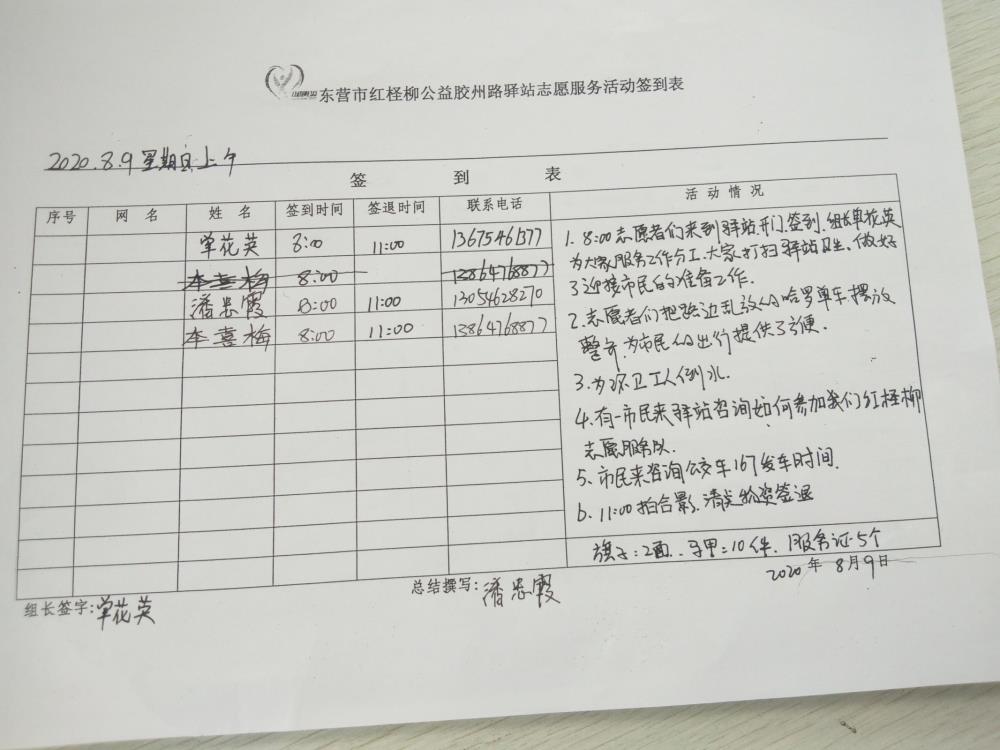 东营市红柽柳公益胶州路驿站志愿服务活动签到表
2020.8.9 星期日上午
签 到 表
序号 网 名 姓 名 签到时间 签退时间 联系电话 活 动 情 况
单花英 8:00 11:00 13675461377
李喜梅 8:00 13864768877
潘忠霞 8:00 11:00 13054628270
李喜梅 8:00 11:00 13864768877
1. 8:00志愿者们来到驿站,开门,签到,组长单花英
为大家服务工作分工,大家打扫驿站卫生、做好
了迎接市民的准备工作.
2.志愿者们把路边乱放的哈罗单车摆放
整齐,为市民的出行提供了方便.
3.为环卫工人倒水.
4.有一市民来驿站咨询如何参加我们红柽柳
志愿服务队.
5、市民来咨询公交车167发车时间.
6、11:00拍合影,清点物资签退
旗子:2面..马甲:10件.服务证:5个
2020年 8月9日
组长签字:单花英
总结撰写:潘忠霞